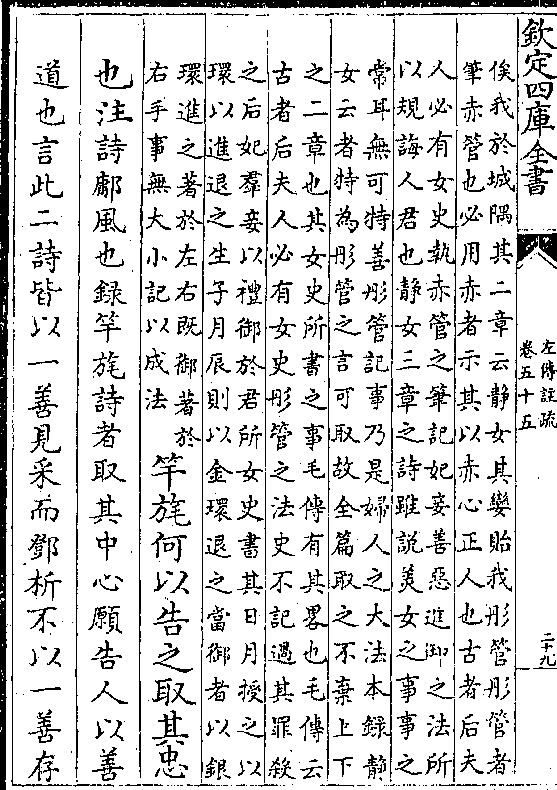 欽定四庫全書
左傳註疏
卷五十五
二十九
俟我於城隅其二章云静女其孌貽我彤管彤管者
筆赤管也必用赤者示其以赤心正人也古者后夫
人必有女史執赤管之筆記妃妾善惡進御之法所
以規誨人君也静女三章之詩雖說美女之事事之
常耳無可特善彤管記事乃是婦人之大法本録静
女云者特為彤管之言可取故全篇取之不棄上下
之二章也其女史所書之事毛傳有其畧也毛傳云
古者后夫人必有女史彤管之法史不記過其罪殺
之后妃羣妾以禮御於君所女史書其日月授之以
環以進退之生子月辰則以金環退之當御者以銀
環進之著於左右既御著於
右手事無大小記以成法
竿旄何以告之取其忠
也注詩鄘風也録竿旄詩者取其中心願告人以善
道也言此二詩皆以一善見采而鄧析不以一善存